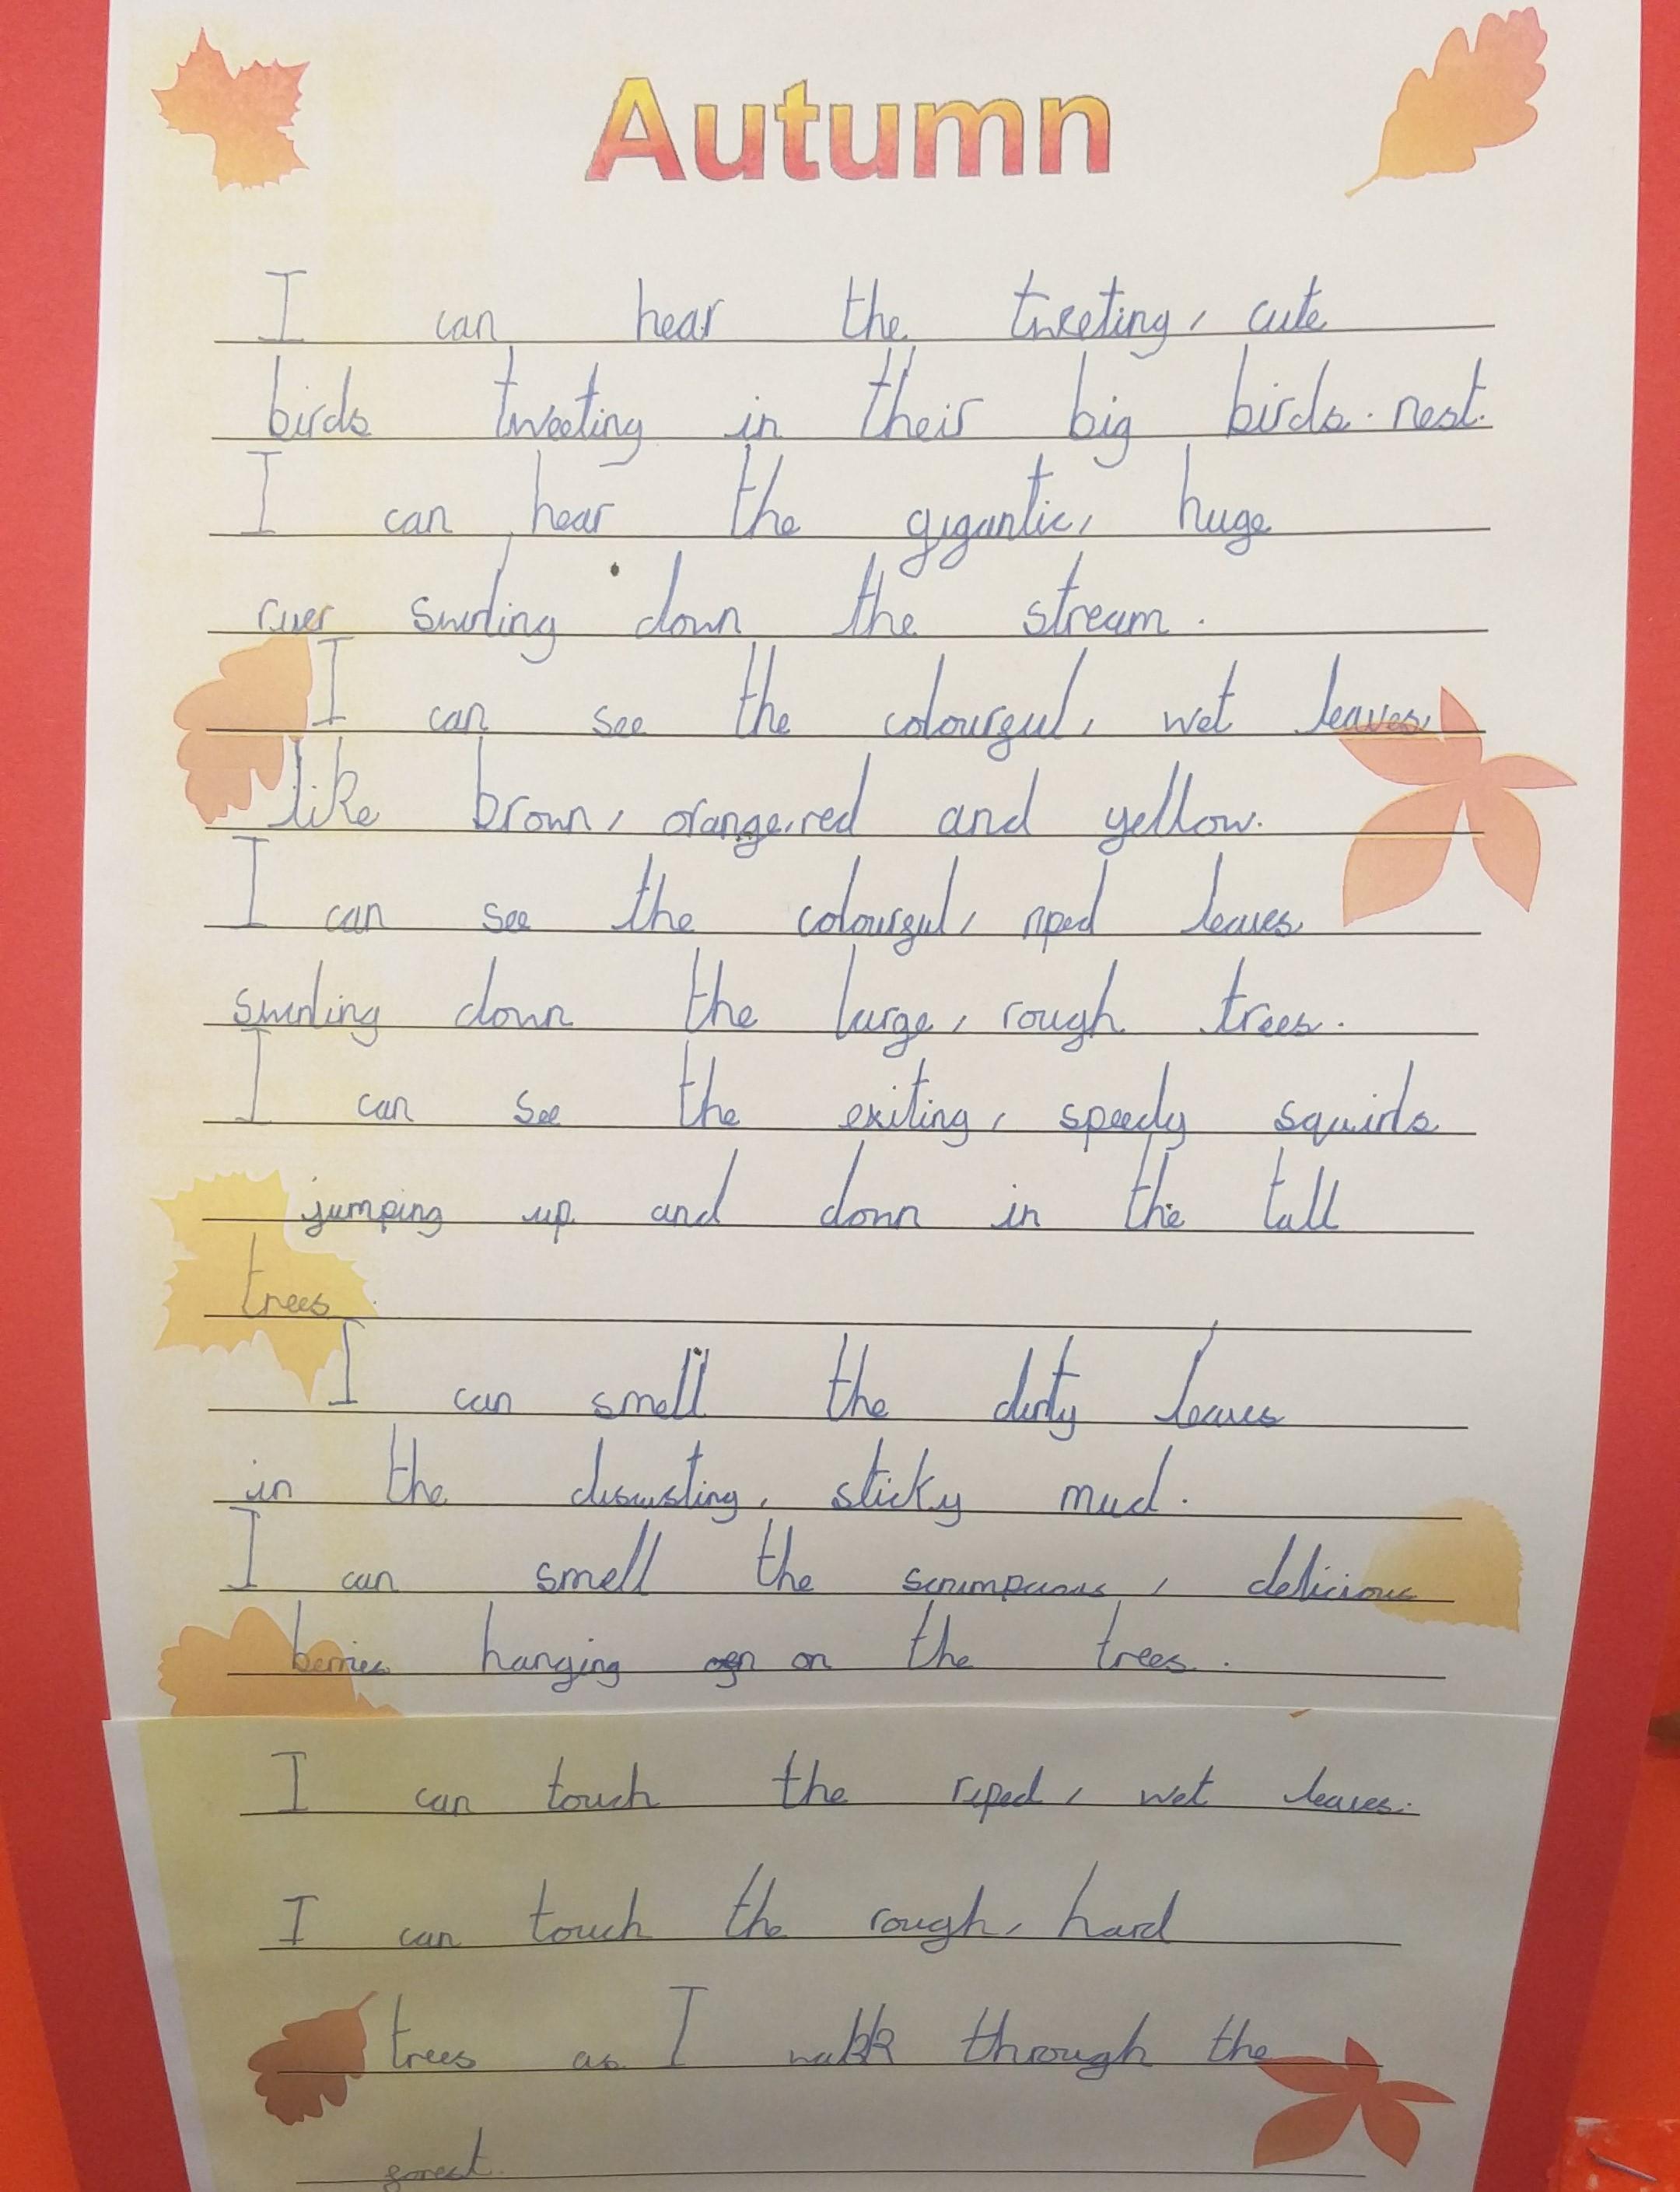 Autumn
I can hear the tweeting, cute
birds tweeting in their big birds nest.
I can hear the gigantic, huge
river swirling down the stream.
I can see the colourful, wet leaves
like brown, orange, red and yellow.
I can see the colourful, riped leaves
swirling down the large, rough trees.
I can see the exiting, speedy squirls
jumping up and down in the tall
trees.
I can smell the dirty leaves
in the disgusting, sticky mud.
I can smell the , delicious
berries hanging on the trees.
I can touch the riped, wet leaves.
I can touch the rough, hard
trees as I walk through the
forest.